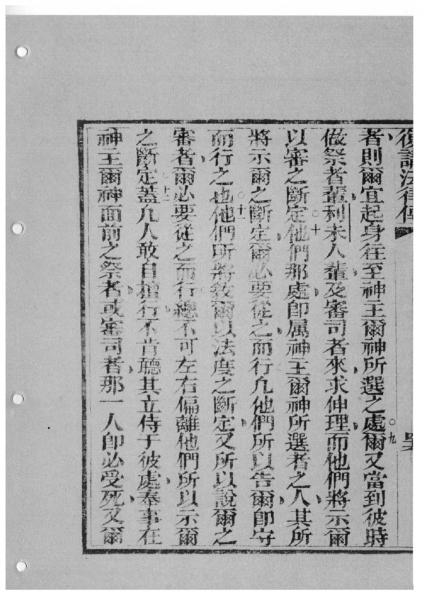 復講法律傳
者則爾宜起身往至神王爾神所選之處○九爾又當到彼時
做祭者輩利未人輩及審司者來求伸理而他們將示爾
以審之斷定○十他們那處卽属神王爾神所選者之人其所
將示爾之斷定爾必要從之而行凢他們所以告爾卽守
而行之也○十一他們所將教爾以法度之斷定又所以說爾之
審者爾必要從之而行總不可左右偏離他們所以示爾
之斷定○十二蓋凢人敢自擅行不肯聽其立侍于彼處奉事在
神王爾神面前之祭者或審司者那一人卽必受死又爾